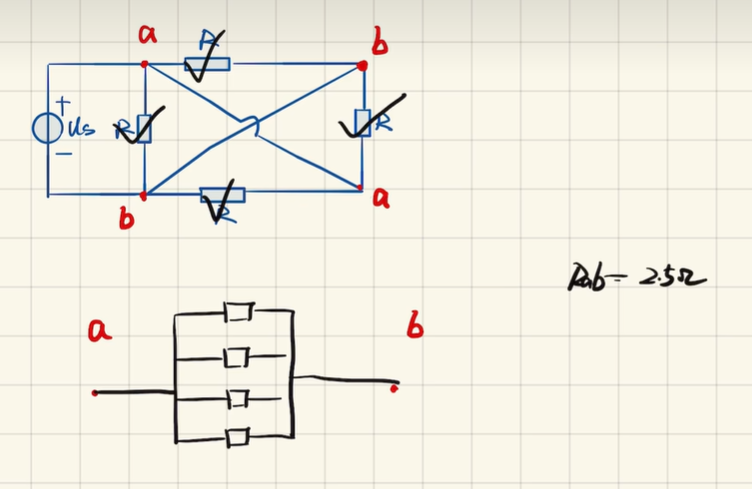 a
R
b
+
Us
−
R
R
b
R
a
Rab = 2.5Ω
a
b